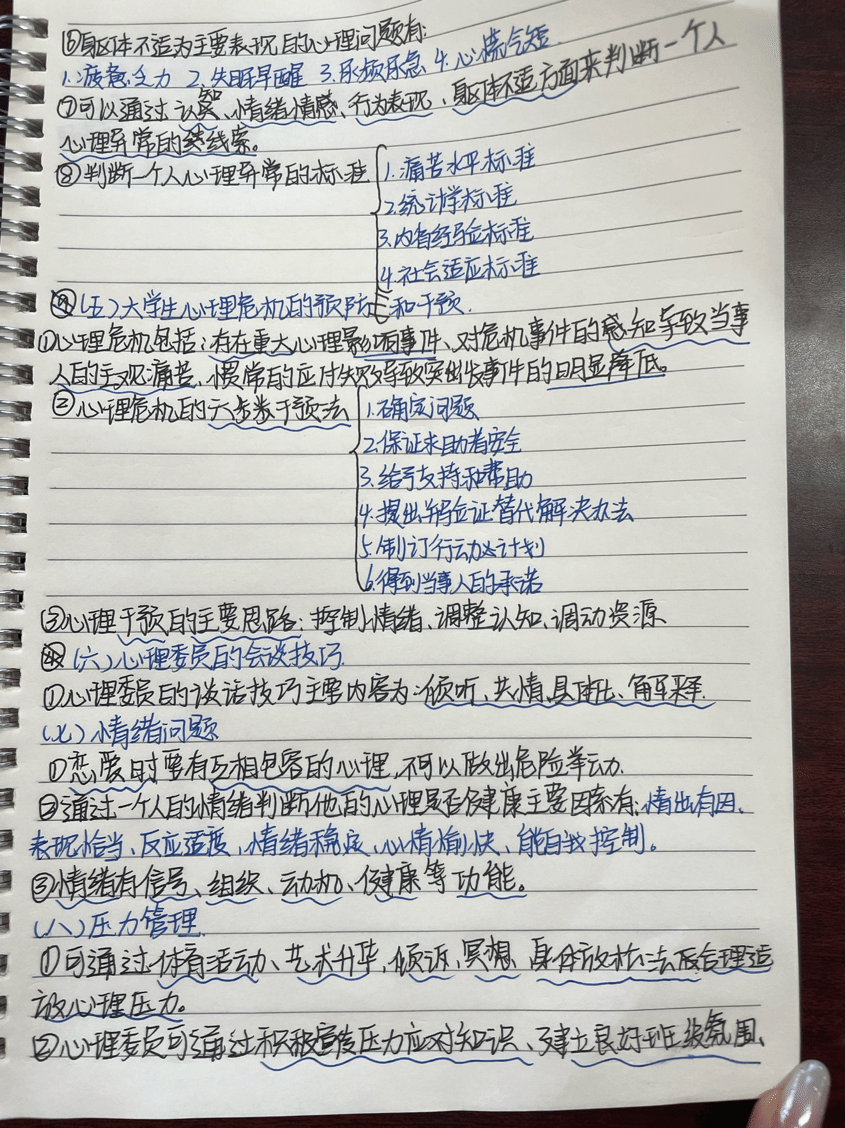 ⑥躯体不适为主要表现的心理问题有:
1.疲惫乏力 2.失眠早醒 3.尿频尿急 4.心慌气短
⑦可以通过认知、情绪情感、行为表现、躯体不适方面来判断一个人
心理异常的线索。
⑧判断一个人心理异常的标准
1.痛苦水平标准
2.统计学标准
3.内省经验标准
4.社会适应标准
(五)大学生心理危机的预防和干预.
①心理危机包括:存在重大心理影响事件、对危机事件的感知导致当事
人的主观痛苦、惯常的应付失败导致突出发事件的明显降低。
②心理危机的六步类干预法
1.确定问题
2.保证求助者安全
3.给予支持和帮助
4.提出并验证替代解决办法
5.制订行动计划
6.得到当事人的承诺
③心理干预的主要思路:控制情绪、调整认知、调动资源
(六)心理委员的会谈技巧.
①心理委员的谈话技巧主要内容为:倾听、共情、具体化、解释.
(七)情绪问题
①恋爱时要有互相包容的心理,不可以做出危险举动.
②通过一个人的情绪判断他的心理是否健康主要因素有:情出有因、
表现恰当、反应适度、情绪稳定、心情愉快、能自我控制。
③情绪有信号、组织、动机、健康等功能。
(八)压力管理.
①可通过体育活动、艺术升华,倾诉,冥想、身体放松法及合理适
放心理压力。
②心理委员可通过积极宣传压力应对知识、建立良好班级氛围、